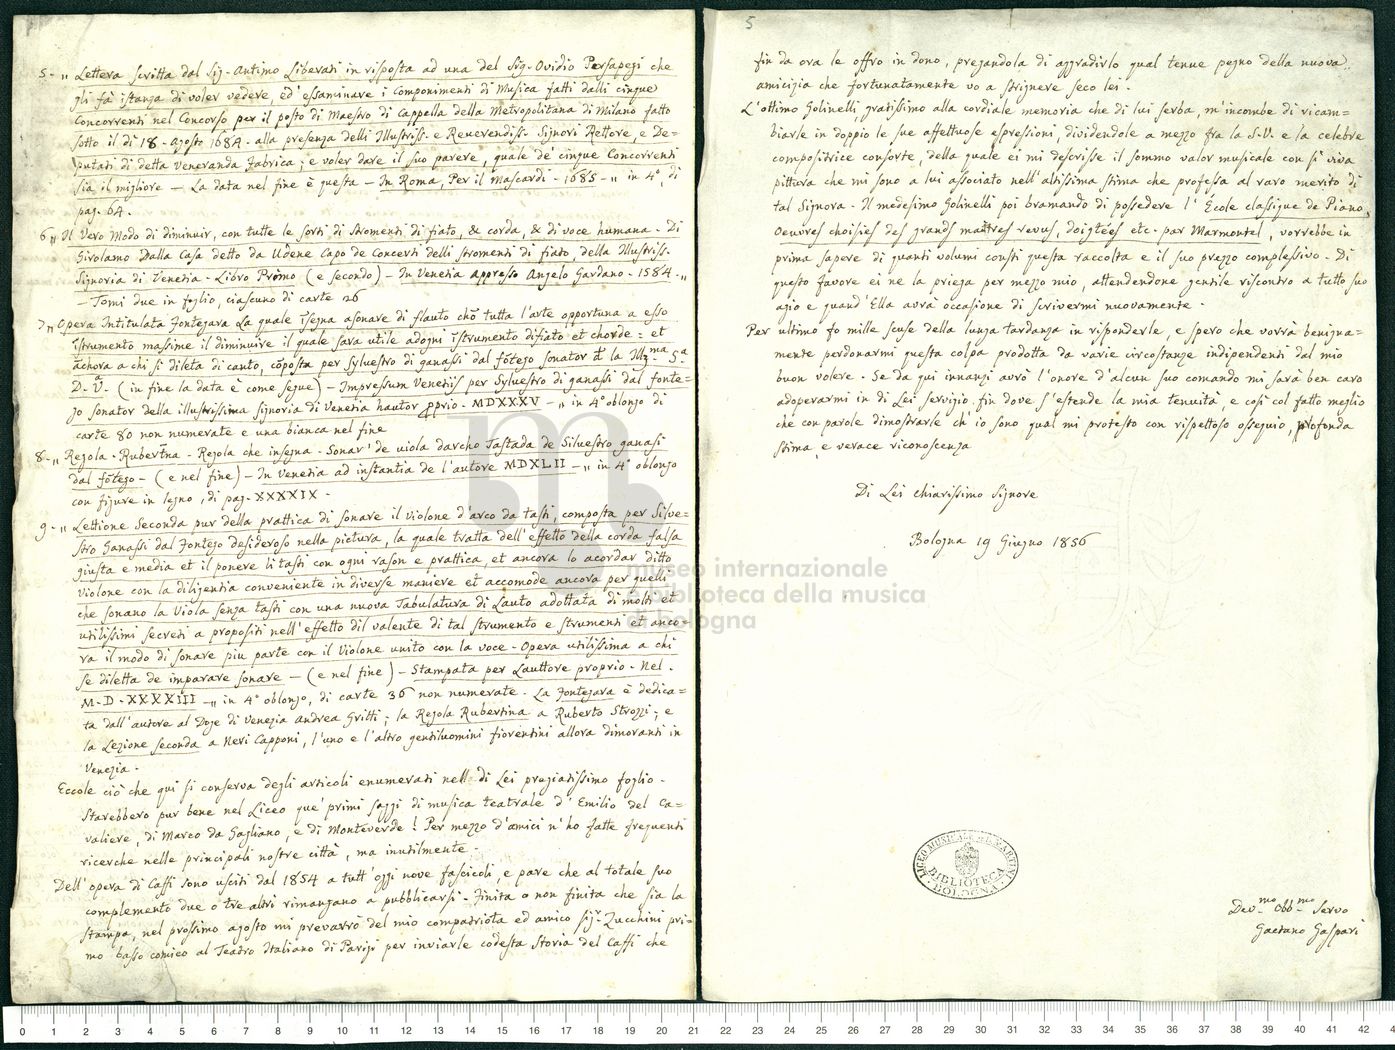 5. „ Lettera scritta dal Sig. Antimo Liberati in risposta ad una del Sig. Ovidio Persapegi che
gli fa' istanza di voler vedere, ed' essaminare i Componimenti di Musica fatti dalli cinque
Concorrenti nel Concorso per il posto di Maestro di Cappella della Metropolitana di Milano fatto
sotto il dì 18. agosto 1684. alla presenza delli Illustriss. e Reverendiss. Signori Rettore, e De=
putati di detta Veneranda Fabrica; e voler dare il suo parere, quale de' cinque Concorrenti
sia il migliore — La data nel fine è questa — In Roma, Per il Mascardi. 1685 — „ in 4°, di
pag. 64.
6 „ Il Vero Modo di diminuir, con tutte le sorti di stromenti di fiato, & corda, & di voce humana. Di
Girolamo Dalla Casa detto da Udene Capo de Concerti delli stromenti di fiato, della Illustriss.
Signoria di Venetia. Libro Primo (e secondo) — In Venetia appresso Angelo Gardano. 1584. „
— Tomi due in foglio, ciascuno di carte 26
7 „ Opera Intitulata Fontegara La quale ĩsegna asonare di flauto chõ tutta l'arte opportuna a esso
ĩstrumento massime il diminuire il quale sara utile adogni ĩstrumento difiato et chorde: et
ãchora a chi si dileta di canto, cõposta per sylvestro di ganassi dal fõtego sonator d la Illma Sa
D. Va. (in fine la data è come segue) — Impressum Venetiis per Sylvestro di ganassi dal fonte=
go sonator della illustrissima signoria di Venetia hautor pprio. MDXXXV — „ in 4° oblongo di
carte 80 non numerate e una bianca nel fine
8. „ Regola. Rubertina. Regola che insegna. Sonar' de viola darcho Tastada de Silvestro ganasi
dal fõtego — (e nel fine) — In Venetia ad instantia de l'autore MDXLII — „ in 4° oblongo
con figure in legno, di pag. XXXXIX.
9. „ Lettione Seconda pur della prattica di sonare il Violone d'arco da tasti, composta per Silve=
stro Ganassi dal Fontego desideroso nella pictura, la quale tratta dell'effetto della corda falsa
giusta e media et il ponere li tasti con ogni rason e prattica, et ancora lo acordar ditto
Violone con la diligentia conveniente in diverse maniere et accomode ancora per quelli
che sonano la Viola senza tasti con una nuova Tabulatura di Lauto adottata di molti et
utilissimi secreti a propositi nell'effetto dil valente di tal strumento e strumenti et anco=
ra il modo di sonare piu parte con il Violone unito con la voce. Opera utilissima a chi
se diletta de imparare sonare — (e nel fine) — Stampata per Lauttore proprio. Nel.
M. D. XXXXIII — „ in 4° oblongo, di carte 36 non numerate. La Fontegara è dedica=
ta dall'autore al Doge di Venezia Andrea Gritti; la Regola Rubertina a Ruberto Strozzi; e
la Lezione seconda a Neri Capponi, l'uno e l'altro gentiluomini fiorentini allora dimoranti in
Venezia.
Eccole ciò che qui si conserva degli articoli enumerati nell' di Lei pregiatissimo foglio.
Starebbero pur bene nel Liceo que' primi saggi di musica teatrale d'Emilio del Ca=
valiere, di Marco da Gagliano, e di Monteverde! Per mezzo d'amici n'ho fatte frequenti
ricerche nelle principali nostre città, ma inutilmente.
Dell'opera di Caffi sono usciti dal 1854 a tutt'oggi nove fascicoli, e pare che al totale suo
complemento due o tre altri rimangano a pubblicarsi. Finita o non finita che sia la
stampa, nel prossimo agosto mi prevarrò del mio compadriota ed amico sigr. Zucchini pri=
mo basso comico al Teatro Italiano di Parigi per inviarle codesta Storia del Caffi che
5
fin da ora le offro in dono, pregandola di aggradirlo qual tenue pegno della nuova
amicizia che fortunatamente vo a strignere seco lei.
L'ottimo Golinelli, gratissimo alla cordiale memoria che di lui serba, m'incombe di ricam=
biarle in doppio le sue affettuose espressioni, dividendole a mezzo fra la S.V. e la celebre
compositrice consorte, della quale ei mi descrisse il sommo valor musicale con sì viva
pittura che mi sono a lui associato nell'altissima stima che professa al raro merito di
tal Signora. Il medesimo Golinelli poi bramando di possedere l'École classique de Piano,
Oeuvres choisies des grands maîtres revus, doigtées etc. par Marmontel, vorrebbe in
prima sapere di quanti volumi consti questa raccolta e il suo prezzo complessivo. Di
questo favore ei ne la priega per mezzo mio, attendendone gentile riscontro a tutto suo
agio e quand'Ella avrà occasione di scrivermi nuovamente.
Per ultimo fo mille scuse della lunga tardanza in risponderle, e spero che vorrà benigna=
mente perdonarmi questa colpa prodotta da varie circostanze indipendenti dal mio
buon volere. Se da qui innanzi avrò l'onore d'alcun suo comando mi sarà ben caro
adoperarmi in di Lei servigio fin dove s'estende la mia tenuità, e così col fatto meglio
che con parole dimostrarle ch'io sono qual mi protesto con rispettoso ossequio, profonda
stima e verace riconoscenza
Di Lei Chiarissimo Signore
Bologna 19 Giugno 1856
Dev.mo Obb.mo Servo
Gaetano Gaspari
LICEO MUSICALE G.B. MARTINI
BIBLIOTECA
BOLOGNA
museo internazionale
e biblioteca della musica
di bologna
0 1 2 3 4 5 6 7 8 9 10 11 12 13 14 15 16 17 18 19 20 21 22 23 24 25 26 27 28 29 30 31 32 33 34 35 36 37 38 39 40 41 42 4